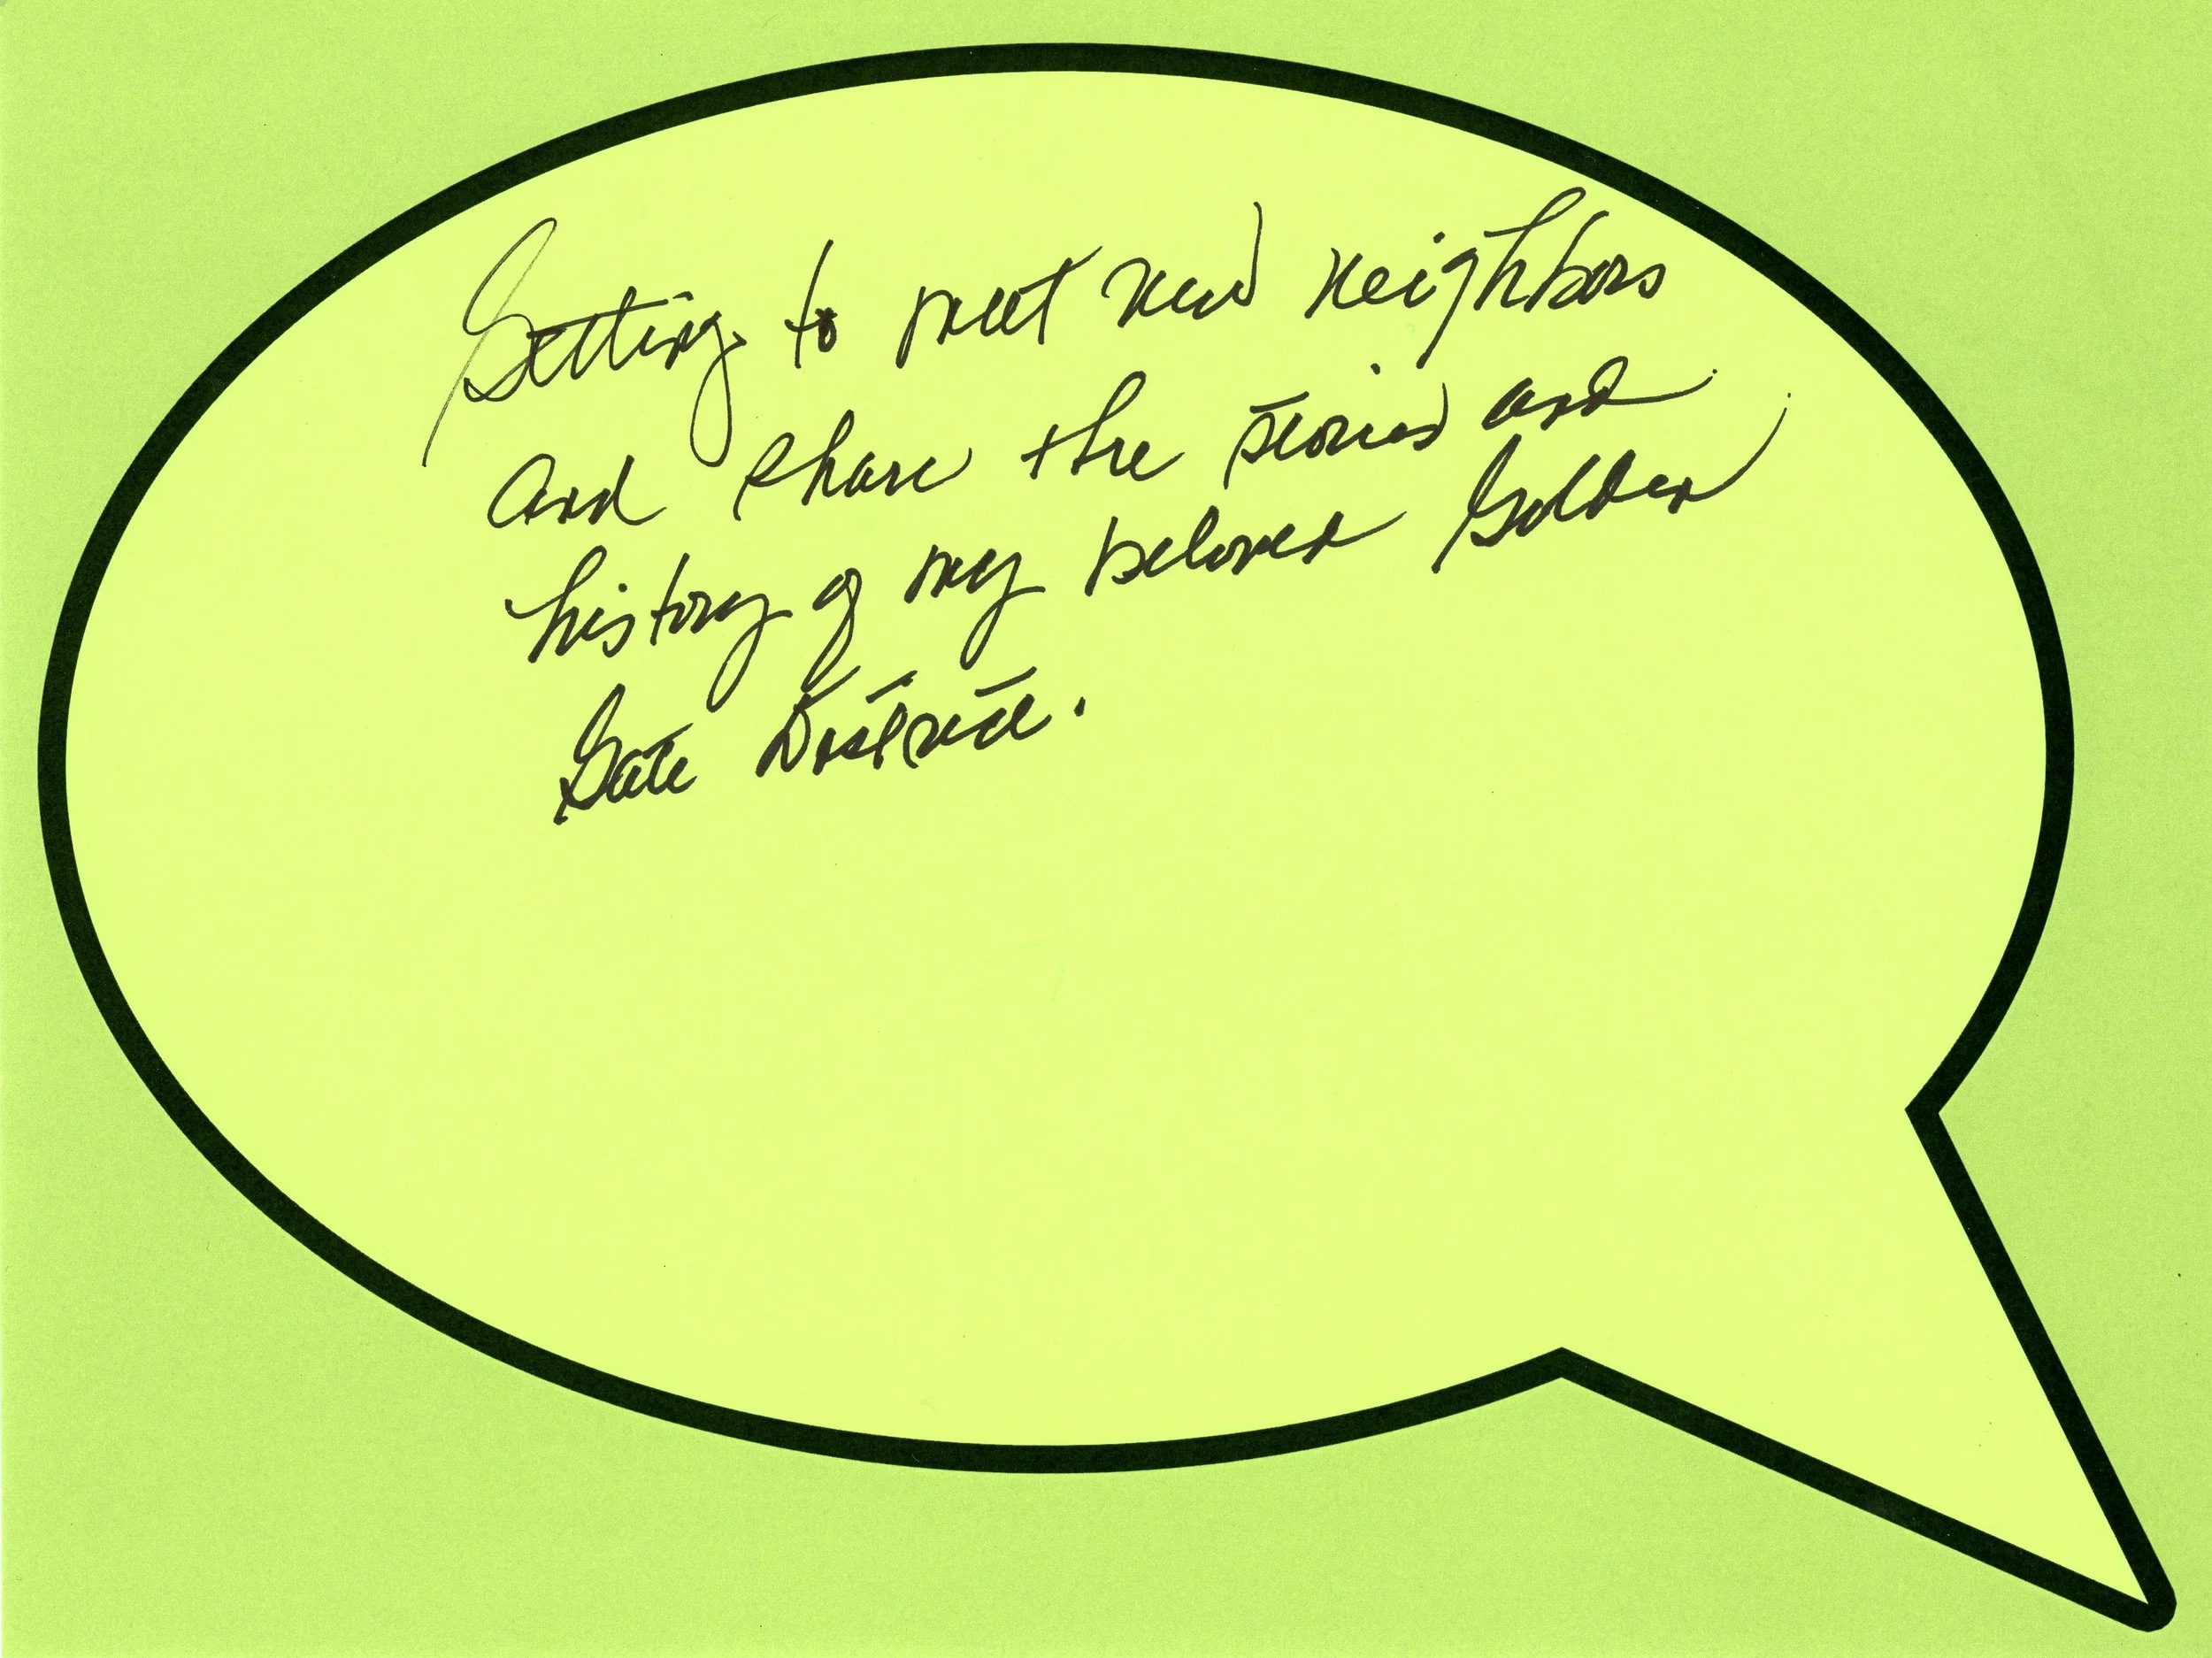 Getting to meet new neighbors
and share the stories and
history of my beloved Golden
Gate District.